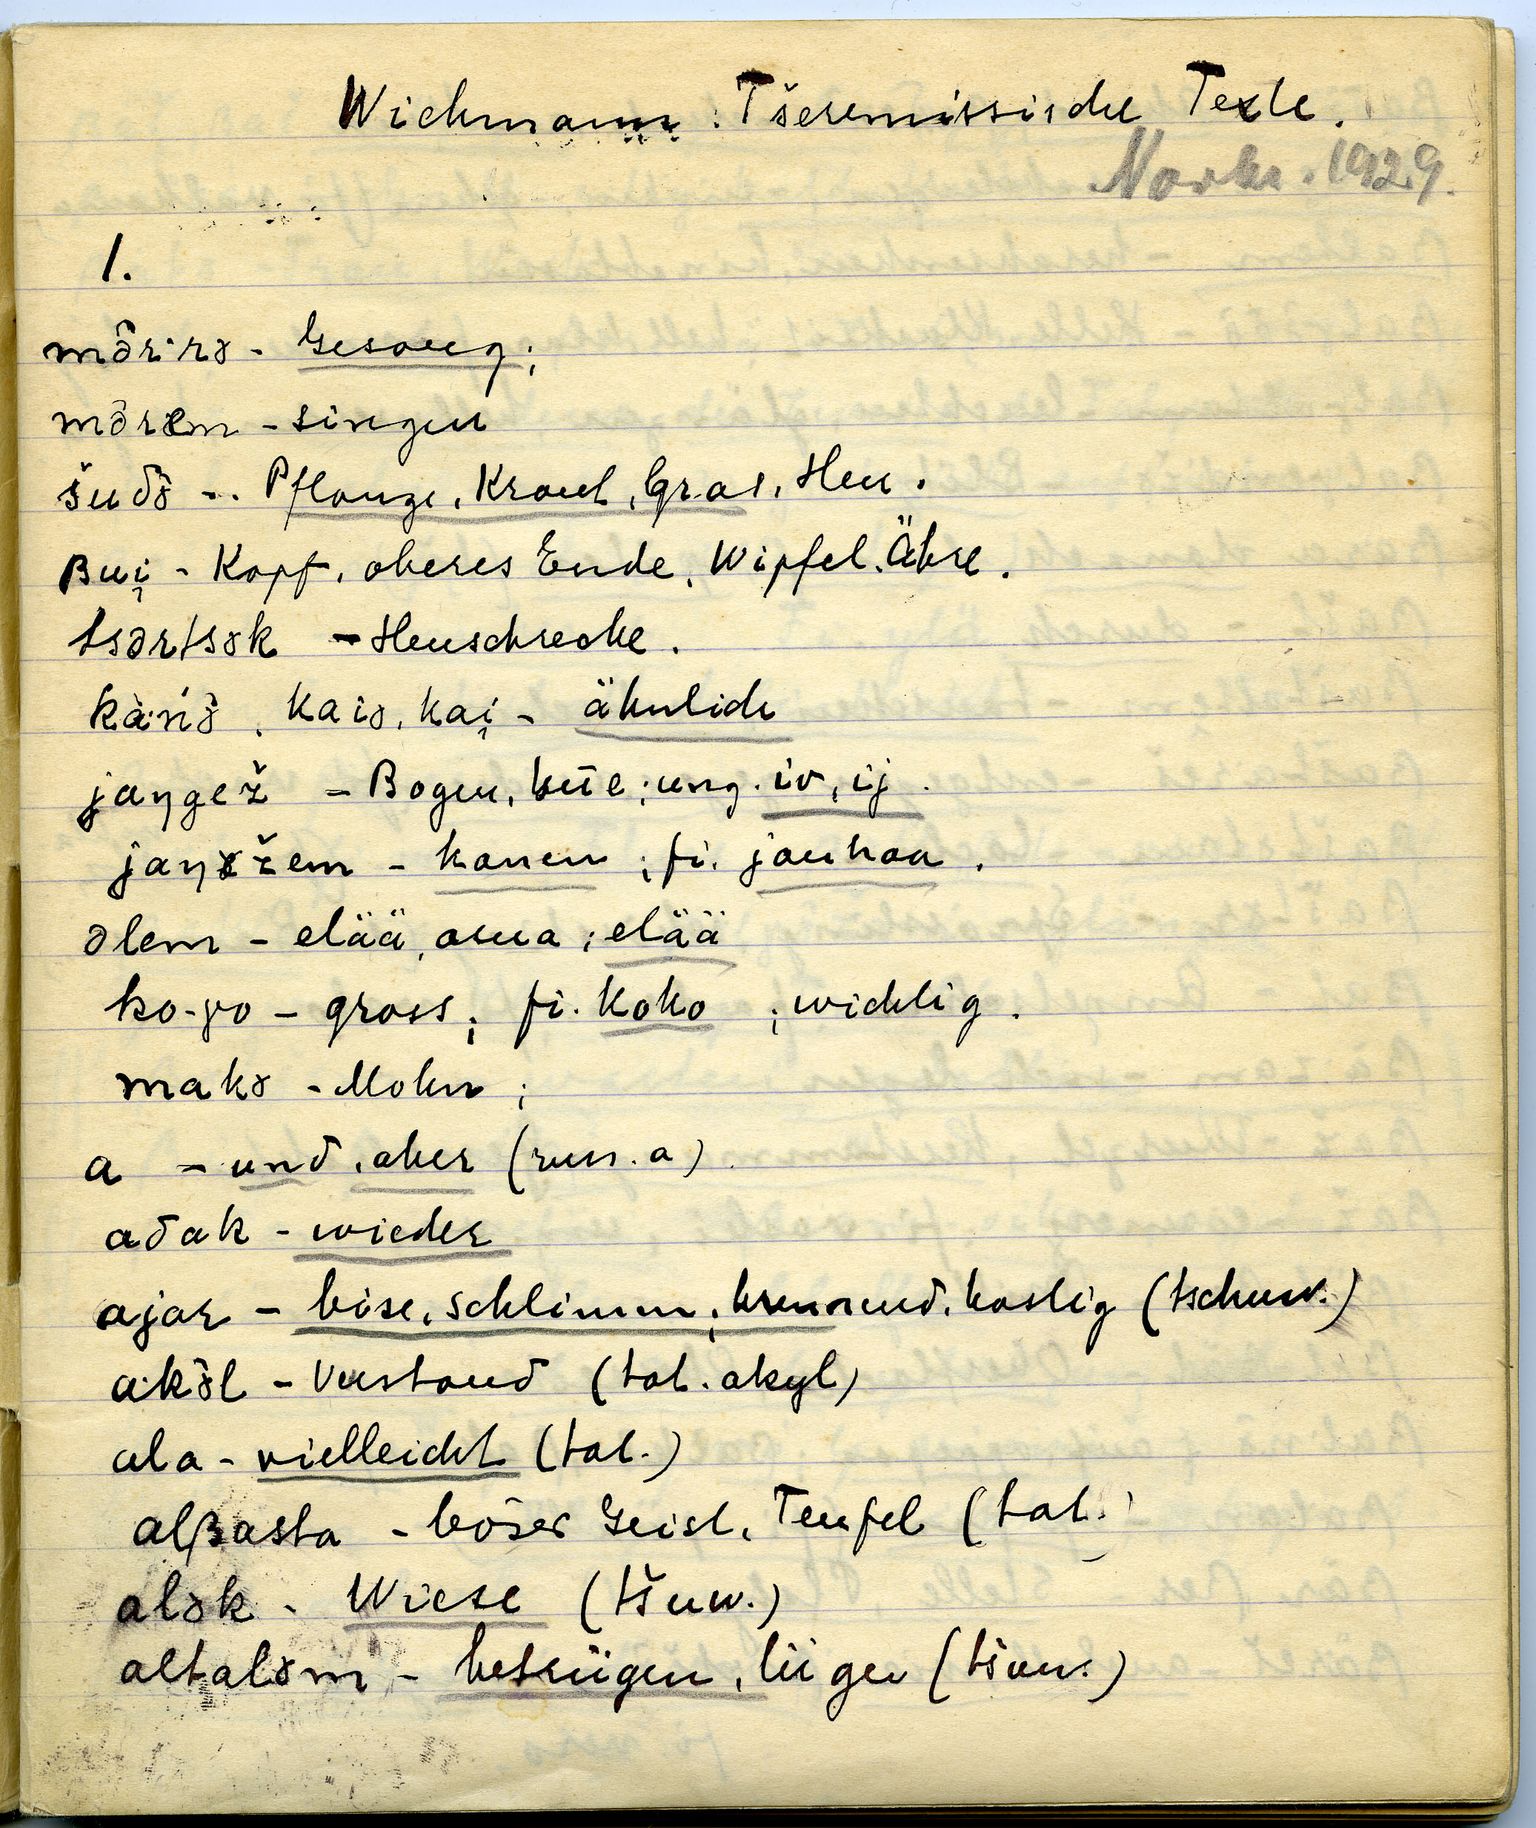 Wichmann: Tšeremissische Texte.
1929.
1.
mə̑rə - Gesang;
mə̑rem - singen
šuδə̑ - Pflanze, Kraut, Gras, Heu.
βui̯ - Kopf, oberes Ende, Wipfel, Ähre.
tsərtsək - Heuschrecke.
kańə̑, kaiə, kai̯ - ähnlich
jaŋgež - Bogen, ; ung. iv, ij.
jaŋəžem - ; fi. jauhaa.
ə̑lem - elää, asua; elää
ko·γo - gross; fi. koko; wichtig.
makə - Mohn;
a - und, aber (russ. a)
aδak - wieder
ajar - böse, schlimm; brennend, hastig (tschuw.)
akə̑l - Verstand (tat. akyl)
ala - vielleicht (tat.)
alβasta - böser Geist, Teufel (tat.)
alək - Wiese (tšuw.)
altaləm - betrügen, lügen (tšuw.)